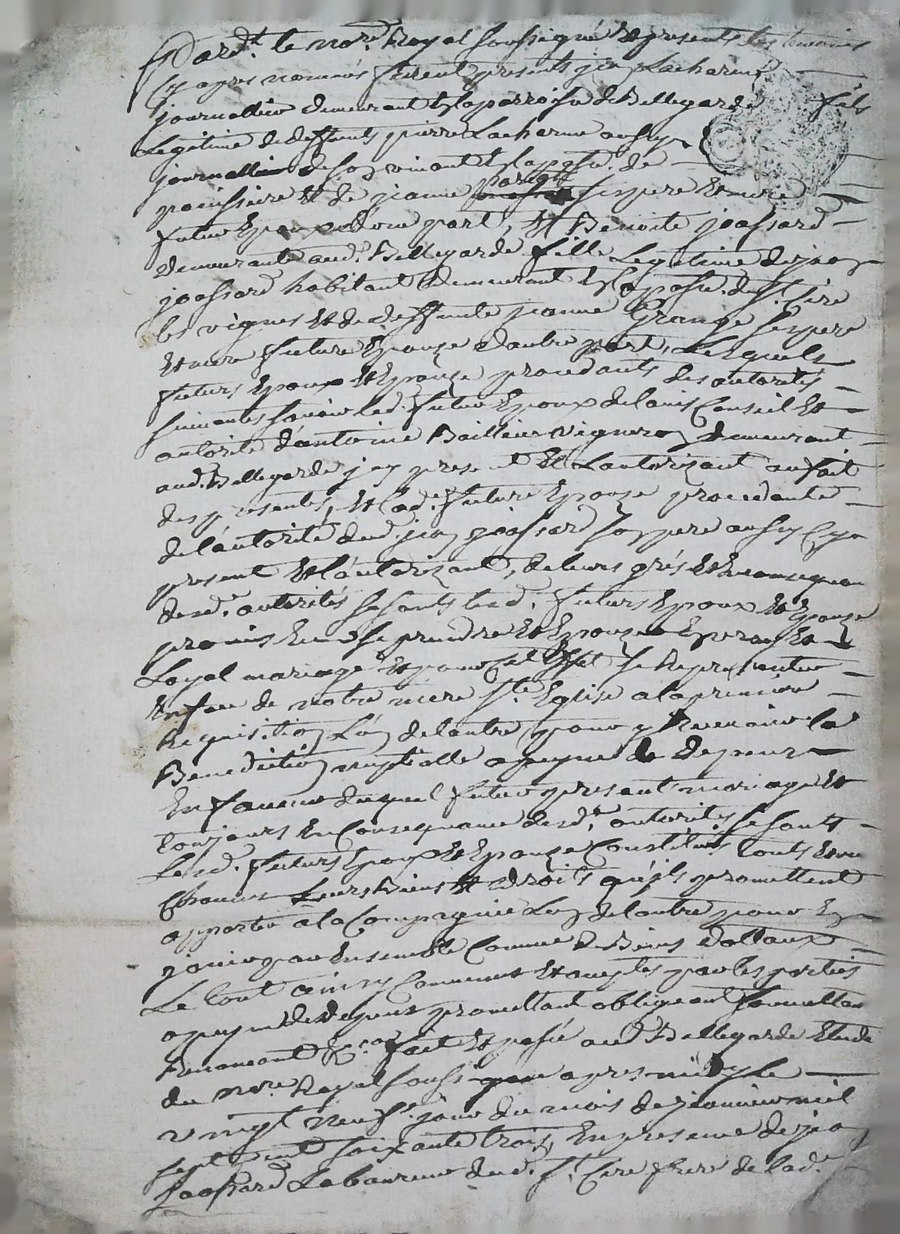 Pard.t le no.re Royal soussigné et presents les temoins
cy apres nommés furent presents jean Lacharme
journallier demeurant en la parroisse de Bellegarde fils
Legitime de deffunt pierre Lacharme aussy
journallier de son vivant en la pa.sse de
et de jeanne ses pere et mere
futur Epoux d'une part, Et Benoite joassard
demeurante aud. Bellegarde fille Legitime de jean
joassard habitant demeurant en la pa.sse de S.t Cire
les vignes Et de deffunte jeanne Grange ses pere
Et mere future Epouze d'autre part, Lesquels
futurs Epoux Et Epouze procedants des autorités
suivantes scavoir led. futur Epoux de l'avis Conseil Et
autorité d'antoine Bailleux vigneron demeurant
aud. Bellegarde jcy present Et L'autorizant au fait
des presentes, Et lad. future Epouze procedante
de l'autorité dud. jean joassard son pere aussy Cy
present Et l'autorizant, de leurs grés Et En consequance
desd. autorités se sont lesd. futurs Epoux Et Epouze
promis En se prendre Et Epouser En vray Et
Loyal mariage Et pour cet Effet se Representer
En face de notre mere S.te Eglise a la premiere
Requisition L'un de l'autre pour y Recevoir la
Benediction nuptialle a peyne de depens
En faveur duquel futur present mariage Et
toujours En Consequance desd. autorités se sont
Lesd. futurs Epoux Et Epouze Constitués touts Et un
Chacun Leurs Biens Et droits qu'ils promettent
apporter a la Compagnie L'un de l'autre pour En
jouir par Ensemble Comme de Biens dottaux
Le tout ainsy Convenu Et accepté par les parties
a peyne de depens promettant obligeant soumettant
Renoncant &.ca fait Et passé aud. Bellegarde Etude
du no.re Royal soussigné apres midy le
vingt neuf.e jour du mois de janvier mil
sept cent soixante trois, En presence de jean
joassard Laboureur dud. S.t Cire frere de lad.e